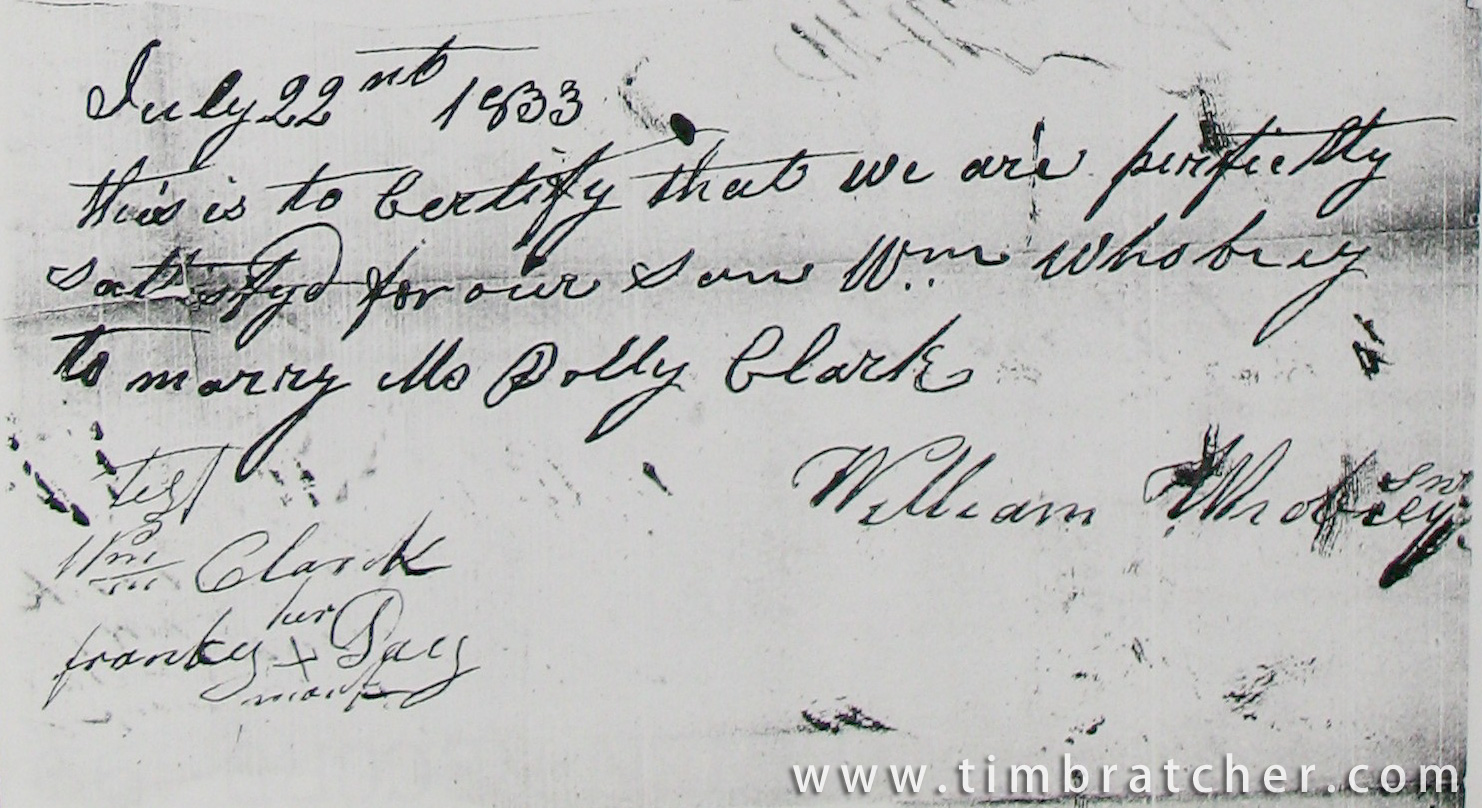 July 22nd 1833
this is to Certify that we are perfictly
sattisfyd for our son Wm Whobrey
to marry Ms Polly Clark
William Whobrey Sn
test
Wm Clark
her
franky X Dacy
mark
www.timbratcher.com